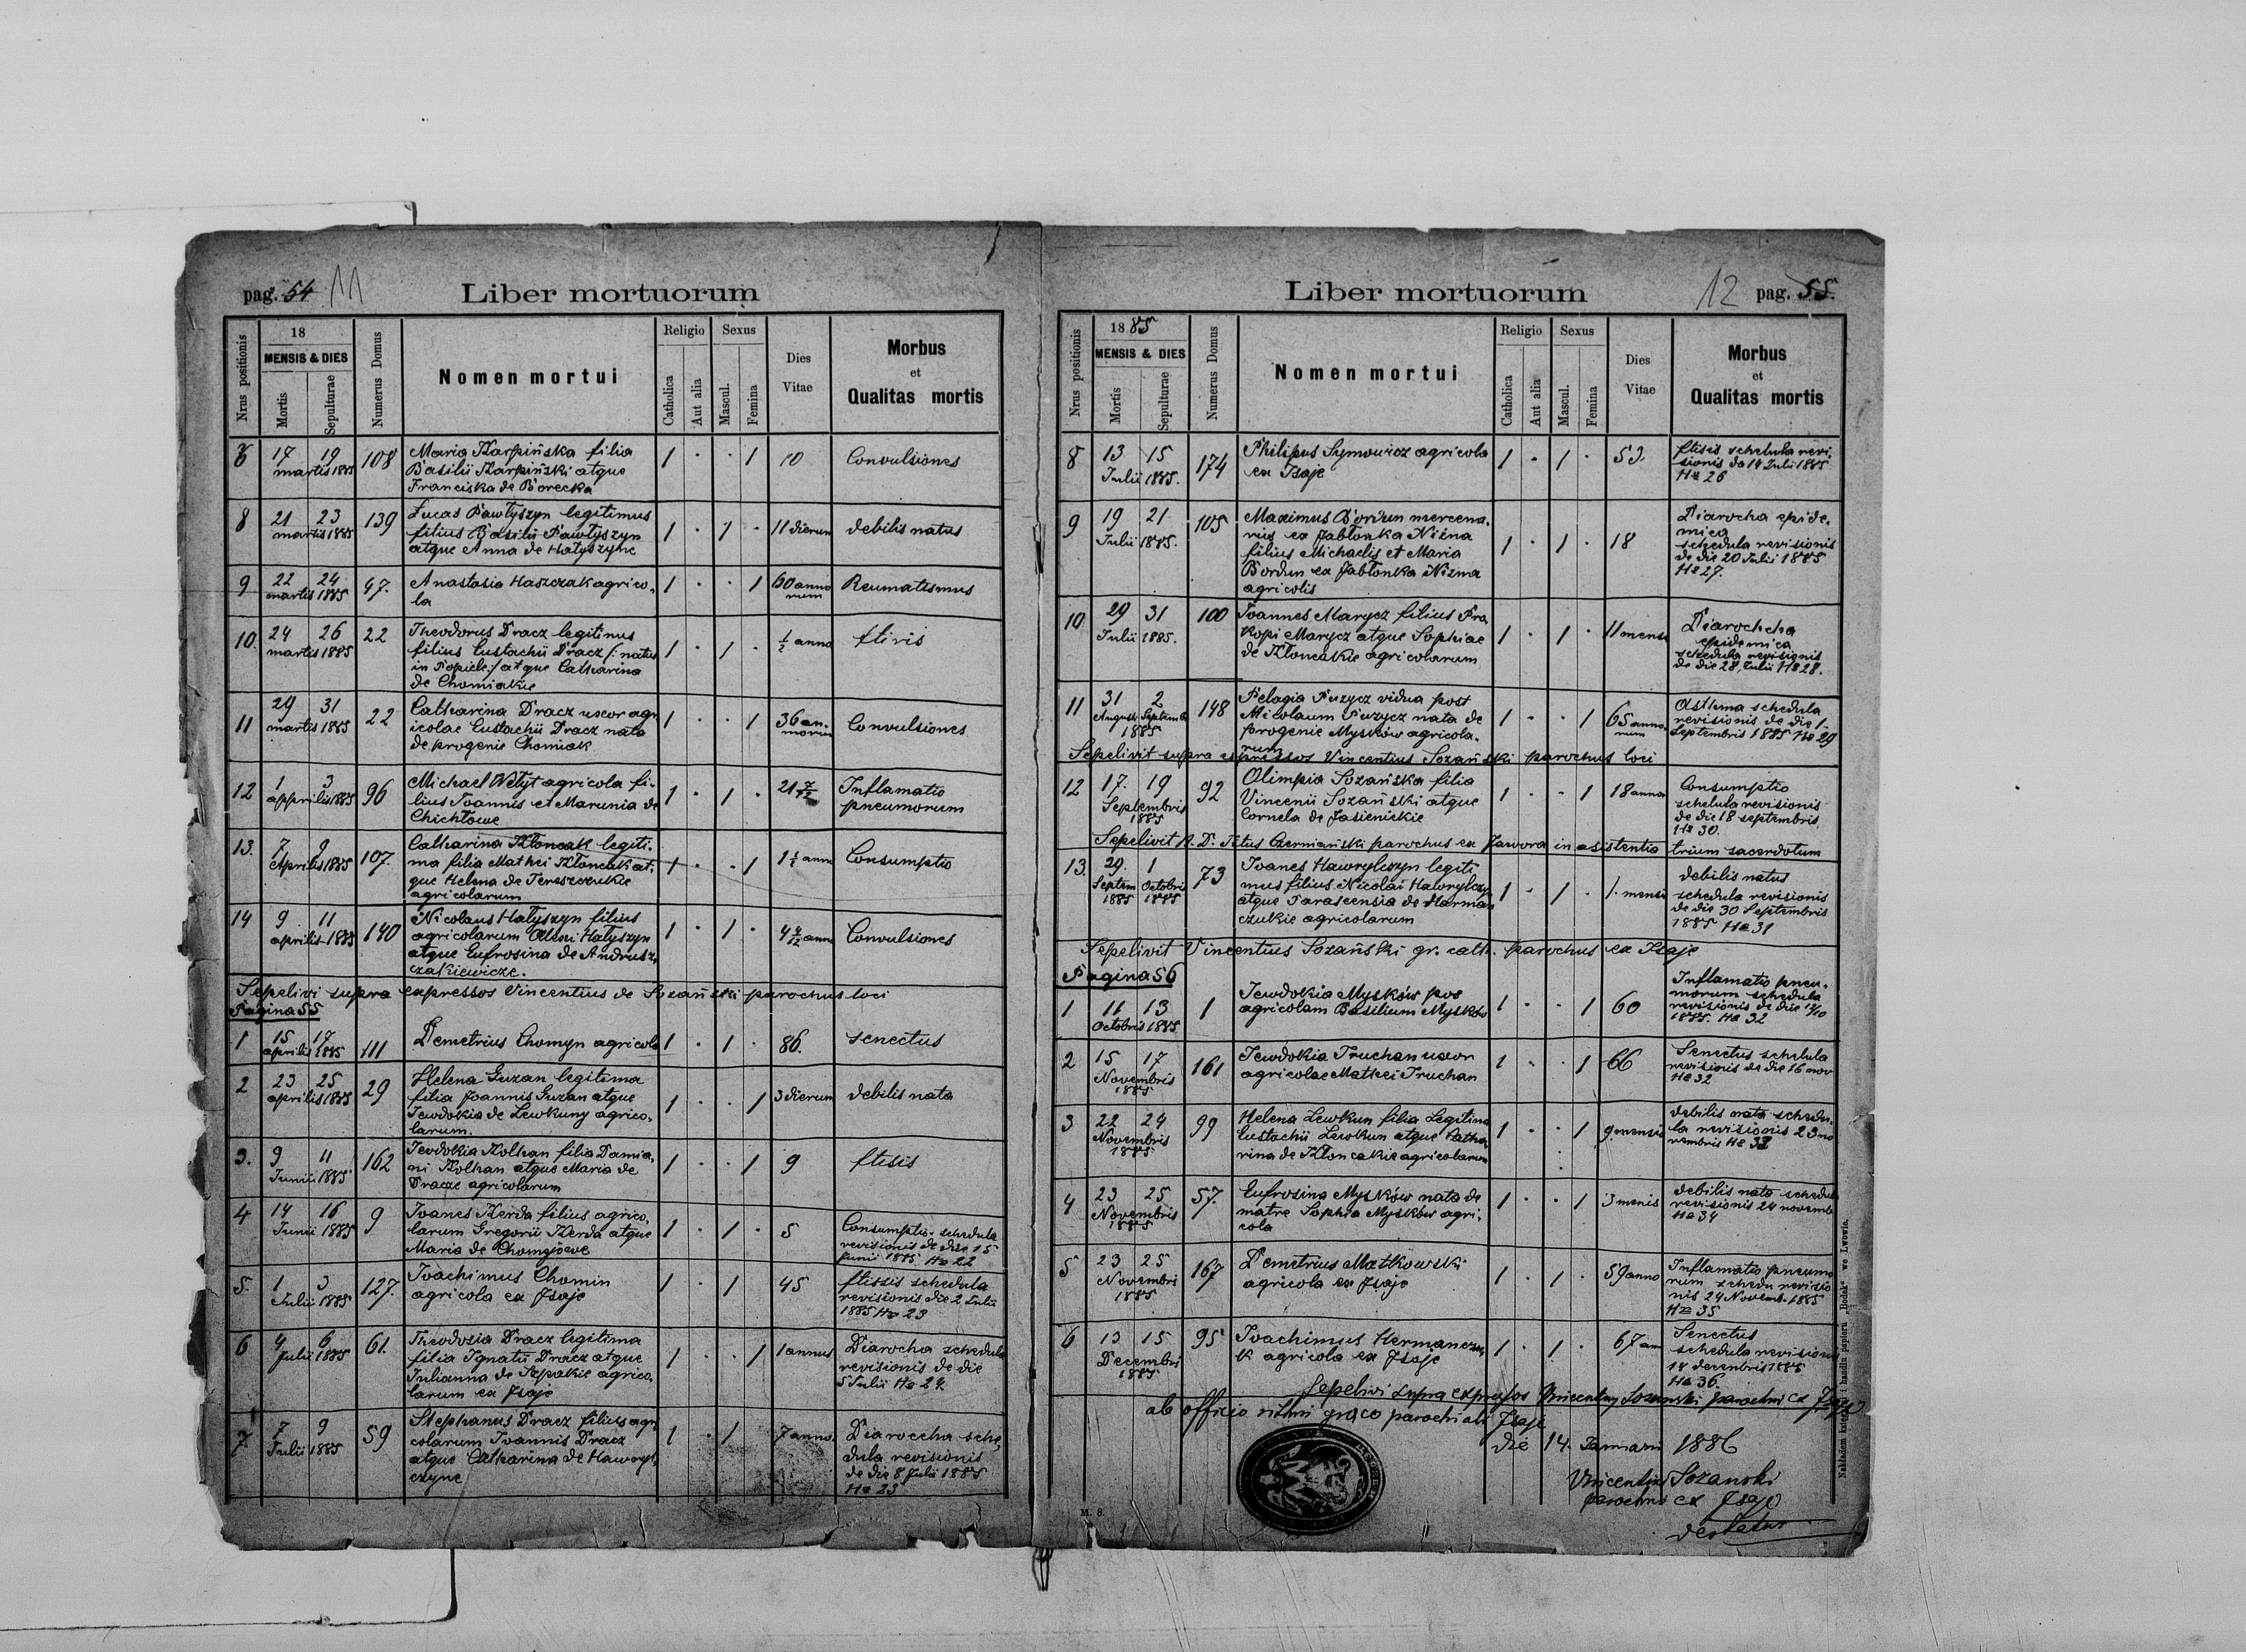 pag. 54 11
Liber mortuorum
Nrus positionis
18
MENSIS & DIES
Mortis
Sepulturae
Numerus Domus
Nomen mortui
Religio
Catholica
Aut alia
Sexus
Mascul.
Femina
Dies
Vitae
Morbus
et
Qualitas mortis
17 19 108 Maria Karpińska filia 1 . . 1 10 Convulsiones
martis 1885 Basilii Karpiński atque
Franciska de Borecka
8 21 23 139 Lucas Pawłyszyn legitimus 1 . 1 . 11 dierum debilis natus
martis 1885 filius Basilii Pawłyszyn
atque Anna de Hałyszyne
9 22 24 47. Anastasia Haszczak agrico- 1 . . 1 60 anno Reumatismus
martis 1885 la rum
10. 24 26 22 Theodorus Dracz legitimus 1 . 1 . ½ anno ftivis
martis 1885 filius Eustachii Dracz /: natus
in Popiele:/ atque Catharina
de Chomiakie
11 29 31 22 Catharina Dracz uxor agr 1 . . 1 36 an. Convulsiones
martis 1885 icolae Eustachii Dracz nata morum
de progenie Chomiak
12 1 3 96 Michael Wełyt agricola fi- 1 . 1 . 21 7/12 Inflamatio
apprilis 1885 lius Ioannis et Marunia de pneumorum
Chichłowe
13. 7 9 107. Catharina Kłoncak legiti- 1 . . 1 1½ anno Consumptio
Aprilis 1885 ma filia Mathei Kłoncak at-
que Helena de Tereszczukie
agricolarum
14 9 11 140 Nicolaus Hałyszyn filius 1 . 1 . anno Convulsiones
aprilis 1885 agricolarum Alexi Hałyszyn
atque Eufrosina de Andrusz-
czakiewicze.
Sepelivi supra expressos Vincentius de Sozański parochus loci
Pagina 55
1 15 17 111 Demetrius Chomyn agricola 1 . 1 . 86. senectus
aprilis 1885
2 23 25 29 Helena Guzan legitima 1 . . 1 3 dierum debilis nata
aprilis 1885 filia Joannis Guzan atque
Iewdokia de Lewkuny agrico-
larum.
3. 9 11 162 Iewdokia Kolhan filia Damia- 1 . . 1 9 ftisis
Iunii 1885 ni Kolhan atque Maria de
Dracze agricolarum
4 14 16 9 Ioanes Kerda filius agrico- 1 . 1 . 5 Consumptio. schedula
Iunii 1885 larum Gregorii Kerda atque revisionis de die 15
Maria de Chomyjowe Junii 1885 № 22
5. 1 3 127. Ioachimus Chomin 1 . 1 45 ftissis schedula
Iulii 1885 agricola ex Jsaje revisionis die 2 Iulii
1885 № 23
6 4 6 61. Theodosia Dracz legitima 1 . . 1 1 annus Diarocha schedula
Julii 1885 filia Ignatii Dracz atque revisionis de die
Iulianna de Szpakie agrico- 5 Iulii № 24
larum ex Jsaje
7. 7 9 59 Stephanus Dracz filius agri 1 . 1 7 anno. Diaroccha sche,
Iulii 1885 colarum Ioannis Dracz dula revisionis
atque Catharina de Hawryl, de die 8 Julii 1885
czyne № 23
Liber mortuorum
12 pag. 55.
Nrus positionis
1885
MENSIS & DIES
Mortis
Sepulturae
Numerus Domus
Nomen mortui
Religio
Catholica
Aut alia
Sexus
Mascul.
Femina
Dies
Vitae
Morbus
et
Qualitas mortis
8 13 15 174 Philipus Symowicz agricola 1 . 1 . 53. ftisis schedula revi-
Iulii 1885. ex Isaje sionis de 14 Iulii 1885
№ 26
9 19 21 105 Maximus Bordun mercena- 1 . 1 . 18 Diarocha epide-
Iulii 1885. rius ex Jabłonka Niżna mica
filius Michaelis et Maria schedula revisionis
Bordun ex Jabłonka Niżna de die 20 Iulii 1885
agricolis № 27.
10 29 31 100 Ioannes Marycz filius Pro 1 . 1 . 11 mens Diarochcha
Iulii 1885. kopi Marycz atque Sophiae epidemica
de Kłoncakie agricolarum schedula revisionis
de die 28, Iulii № 28.
11 31 2 148 Pelagia Puzycz vidua post 1 . . 1 65 anno Asthma schedula
August Septemb Micolaum Puzycz nata de rum revisionis de die 1
1885 progenie Mysków agricola- Septembris 1885 № 29
rum
Sepelivit supra expressos Vincentius Sozański parochus loci
12 17. 19 92 Olimpia Sozańska filia 1 . . 1 18 anno Consumptio
Septembris Vincenii Sozański atque schedula revisionis
1885 Cornela de Jasienickie de die 18 septembris
№ 30.
Sepelivit A. D. Titus Czermański parochus ex Jawora in asistentia trium sacerdotum
13. 29. 1 73 Ioanes Hawrylczyn legiti 1 . 1 . 1. mensi debilis natus
Septem Octobri mus filius Nicolai Hawrylczy schedula revisionis
1885 1885 atque Parascensia de Harman de die 30 Septembris
czukie agricolarum 1885 № 31
Sepelivit Vincentius Sozański gr. cath. parochus ex Isaje
Pagina 56
1 11 13 1 Iewdokia Mysków pos 1 . . 1 60 Inflamatio pneu-
Octobris 1885 agricolam Basilium Mysków morum schedula
revisionis de die 12/10
1885. № 32
2 15 17 161 Iewdokia Truchan uxor 1 . . 1 66 Senectus schedula
Novembris agricolae Mathei Truchan revisionis de die 16 nov
1885 № 32
3 22 24 99 Helena Lewkun filia Legitima 1 . . 1 9. mensis debilis nata schedu-
Novembris Eustachii Lewkun atque Catha, la revisionis 23 no
1885 rina de Kłoncakie agricolarum vembris № 33
4 23 25 57. Eufrosina Mysków nata de 1 . . 1 3 menis debilis nata schedul
Novembris matre Sophia Mysków agri- revisionis 24 novemb
1885 cola № 34
5 23 25 167 Demetrius Matkowski 1 . 1 . 59 anno Inflamatio pneumo
Novembri agricola ex Jsaje rum schedu revisio
1885 nis 24 Novemb. 1885
№ 35
6 13 15 95 Ioachimus Hermanczu 1 . 1 . 67 an Senectus
Decembri k agricola ex Jsaje schedula revisioni
1885 14 decenbris 1885
№ 36.
Sepelivi supra expressos Vincentius Sozanski parochus ex Jsaje
ab officio rithmi graco parochiali Jsaje
die 14. Januarii 1886
Vincentius Sozanski
parochus ex Jsaje
M. 8.
Nakładem księgarni i handlu papieru „Bodek" we Lwowie.